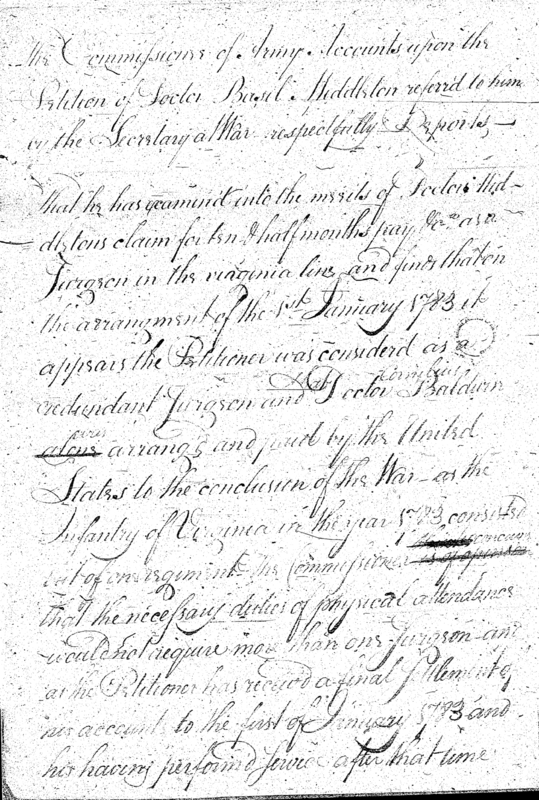 the Commissioner of Army Accounts upon the
Petition of Doctor Basil Middleton referrd to him
by the Secretary at War respectfully Reports,—
That he has examined into the merits of Doctor Mid-
dletons claim for ten & half months pay &ca. as a
Surgeon in the virginia line, and finds that on
the arrangment of the 1st January 1783 it
appears the Petitioner was considerd as a
redundant Surgeon and that Doctor Cornelius Baldwin
alone was arrang'd and paid by the United
States to the conclusion of the War — as the
Infantry of Virginia in the year 1783 consisted
but of one regiment the Commissioner is of opinion
that the necessary duties of physical attendance
would not require more than one Surgeon and
as the Petitioner has received a final settlement of
his accounts to the first of January 1783 and
his having perform'd service after that time